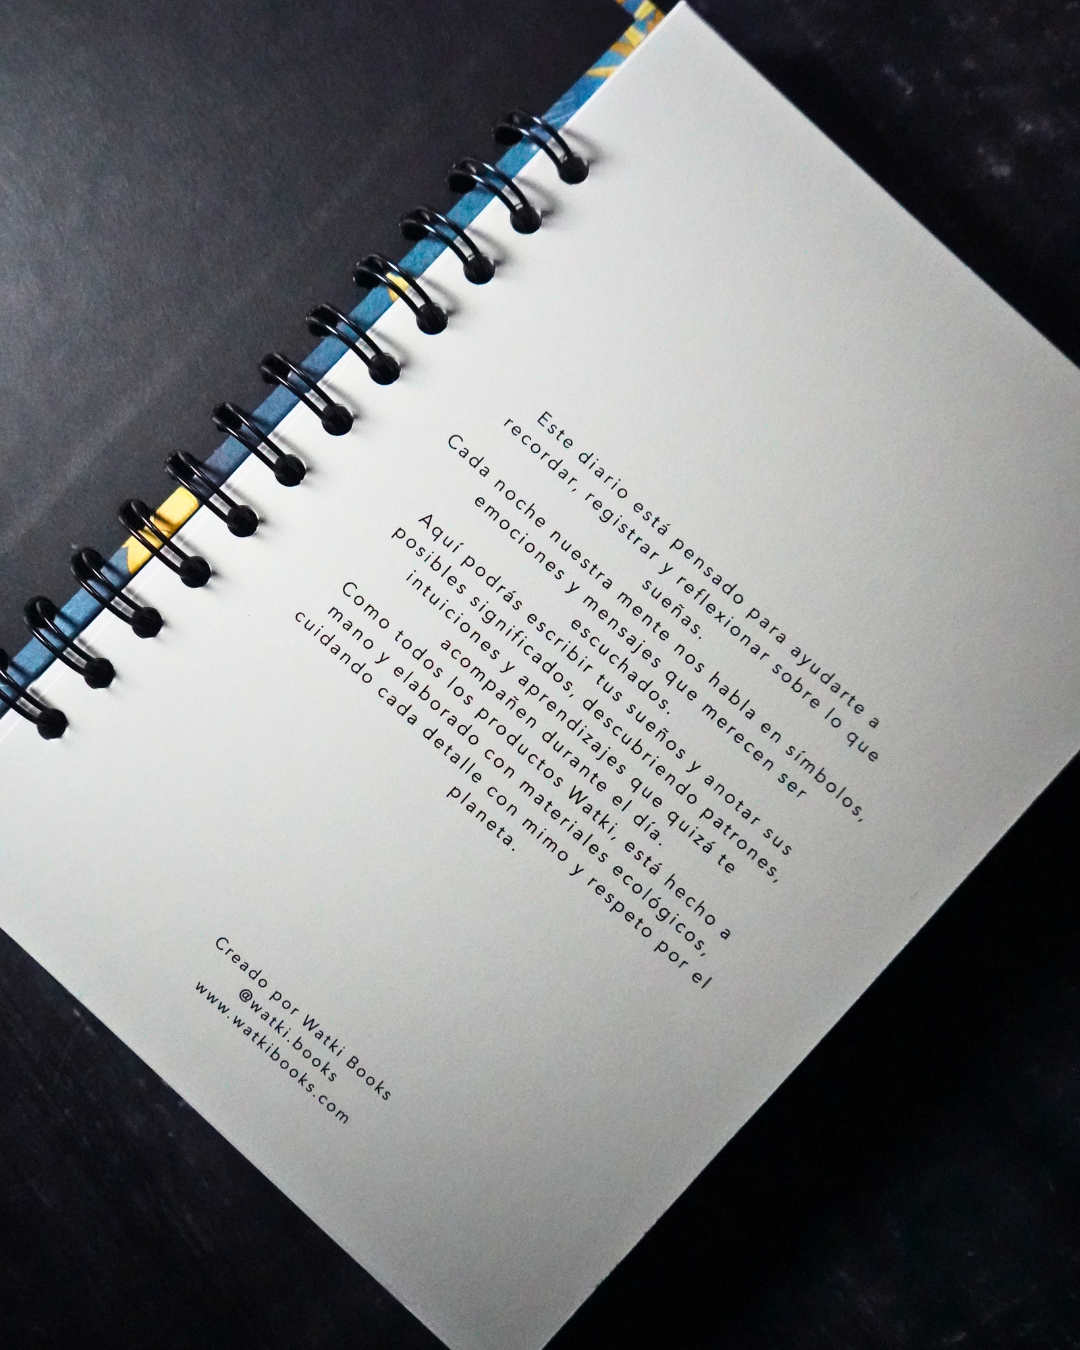 Este diario está pensado para ayudarte a
recordar, registrar y reflexionar sobre lo que
sueñas.
Cada noche nuestra mente nos habla en símbolos,
emociones y mensajes que merecen ser
escuchados.
Aquí podrás escribir tus sueños y anotar sus
posibles significados, descubriendo patrones,
intuiciones y aprendizajes que quizá te
acompañen durante el día.
Como todos los productos Watki, está hecho a
mano y elaborado con materiales ecológicos,
cuidando cada detalle con mimo y respeto por el
planeta.
Creado por Watki Books
@watki.books
www.watkibooks.com